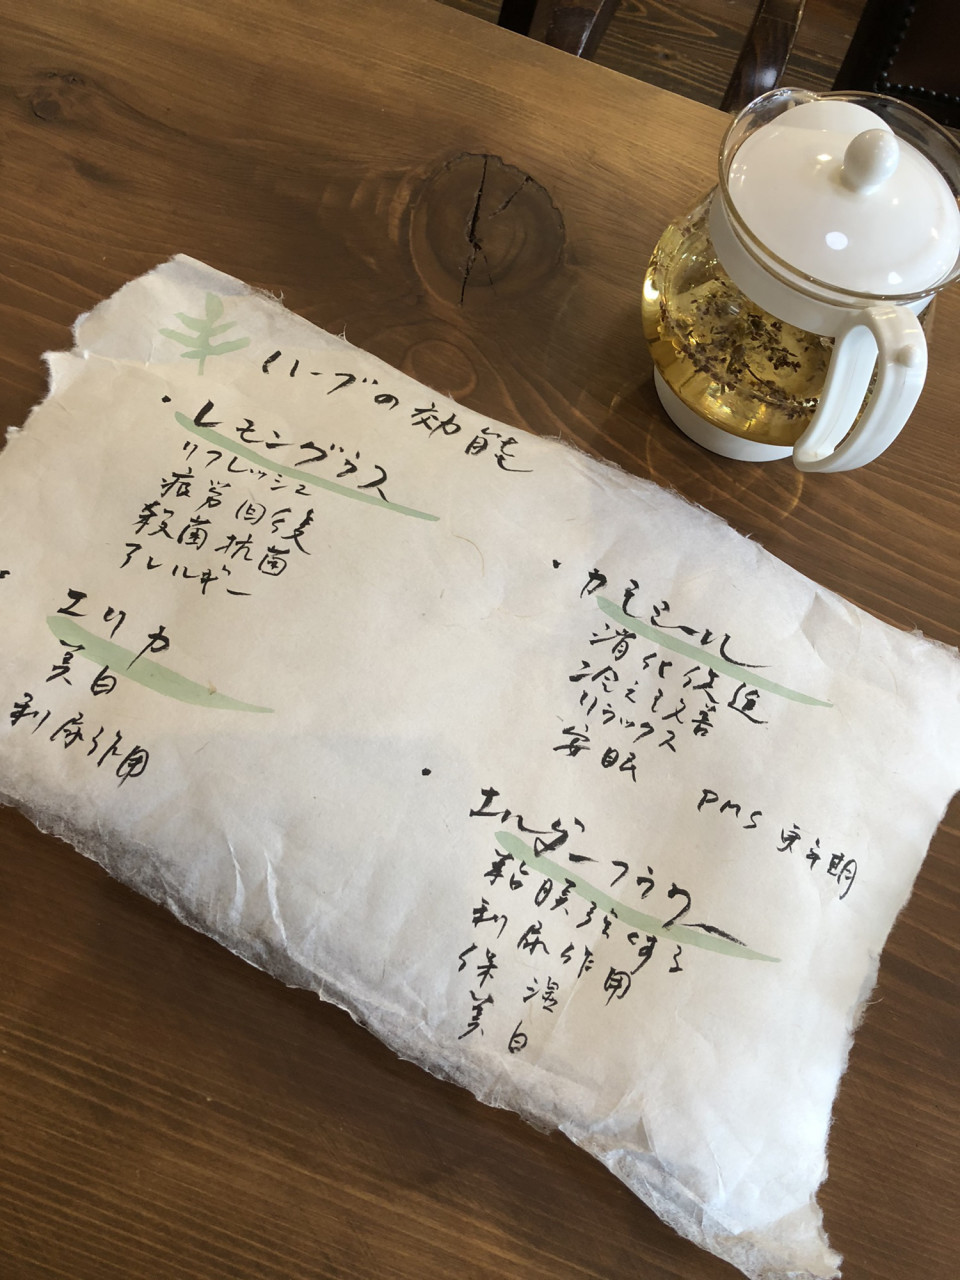 ハーブの効能
・レモングラス
リフレッシュ
疲労回復
殺菌抗菌
アレルギー
・エリカ
美白
利尿作用
・カモミール
消化促進
冷え改善
リラックス
安眠
PMS 更年期
・エルダーフラワー
粘膜強する
利尿作用
保湿
美白